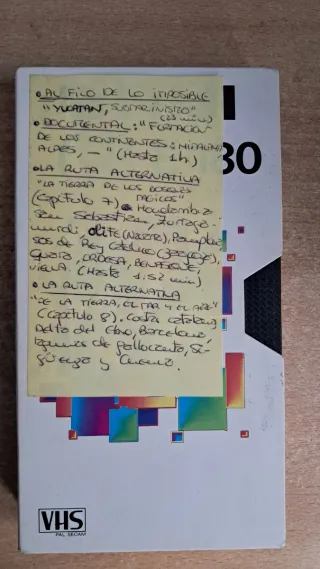 • AL FILO DE LO IMPOSIBLE
"YUCATAN, SUBMARINISTO"
(23 min)
• DOCUMENTAL: "FORMACION
DE LOS CONTINENTES: HIMALAYA,
ALPES, — " (Hasta 1h.)
• LA RUTA ALTERNATIVA
"LA TIERRA DE LOS BOSQUES
MAGICOS"
(Capitulo 7) • Hondarribia
San Sebastian, Zurraga-
murdi, Olite (Navarra), Pamplona
Sos de Rey Catolico (Zaragoza),
Guara, ORDESA, BENASQUE,
(Hasta 1.52 min)
• LA RUTA ALTERNATIVA
"DE LA TIERRA, EL MAR Y EL AIRE"
(Capitulo 8). Costa catalana,
Delta del Ebro, Barcelona,
laguna de Gallocanta, Si-
güenza y Cuenca.
80
VHS
PAL SECAM